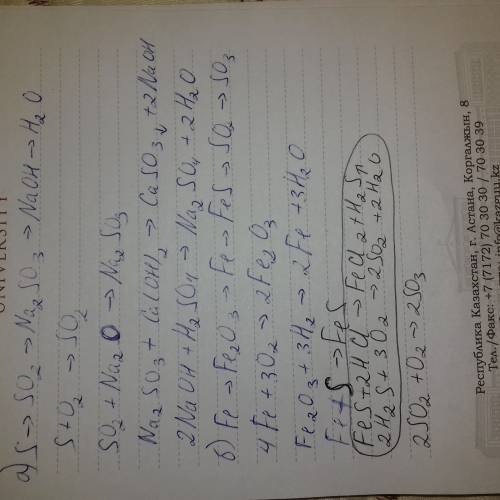 UNIVERSITY
а) S → SO₂ → Na₂SO₃ → NaOH → H₂O
S+O₂ → SO₂
SO₂ + Na₂O → Na₂SO₃
Na₂SO₃ + Ca(OH)₂ → CaSO₃↓ + 2NaOH
2NaOH + H₂SO₄ → Na₂SO₄ + 2H₂O
б) Fe → Fe₂O₃ → Fe → FeS → SO₂ → SO₃
4Fe + 3O₂ → 2Fe₂O₃
Fe₂O₃ + 3H₂ → 2Fe + 3H₂O
Fe + S → FeS
FeS + 2HCl → FeCl₂ + H₂S↑
2H₂S + 3O₂ → 2SO₂ + 2H₂O
2SO₂ + O₂ → 2SO₃
Республика Казахстан, г. Астана, Коргалжын, 8
Тел./Факс: +7 (7172) 70 30 30 / 70 30 39